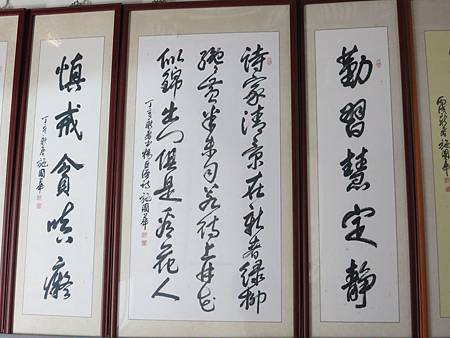 丙戌新春施國華
勤習慧定靜
诗家清景在新春绿柳
纔黄半未匀若待上林花
似錦出门俱是看花人
丁亥新春書楊巨源詩 施國華
慎戒貪嗔癡
丁亥新春施國華